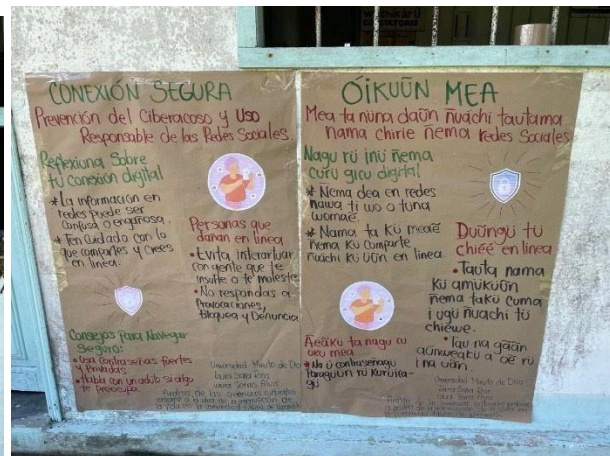 CONSULTORIO
CONEXIÓN SEGURA
Prevención del Ciberacoso y Uso
Responsable de las Redes Sociales
Reflexiona Sobre
tú conexión digital
* La información en
redes puede ser
confusa o engañosa.
* Ten Cuidado con lo
que compartes y Crees
en línea.
Personas que
dañan en línea
• Evita interactuar
con gente que te
insulte o te moleste
• No respondas a
Provocaciones,
bloquea y Denuncia
Consejos para Navegar
Seguro:
• Usa contraseñas fuertes
y Privadas
• Habla con un adulto si algo
te preocupa
Universidad Minuto de Dios
Laura Sofia Rios
Laura Torres
ÓIKUŨN MEA
Mea ta nüna daũn ñuãchi tautama
nama chirie ñema redes Sociales
Nagu rü inü ñema
curü gicu digital
* Nema dea en redes
nawa ti wo o tüna
womaẽ
* Nama ta kü meaẽ
nema kü comparte
nuãchi kü üün en línea.
Duũngü tü
chieẽ en línea
• Tauta nama
kü amükuũn
ñema takü cuma
i ugü ñuachi tü
chiewe.
• Tau na gaãn
o oẽ rü
na uãn.
ta nagu
mea
Universidad Minuto de Dios
Laura Sofia Rios